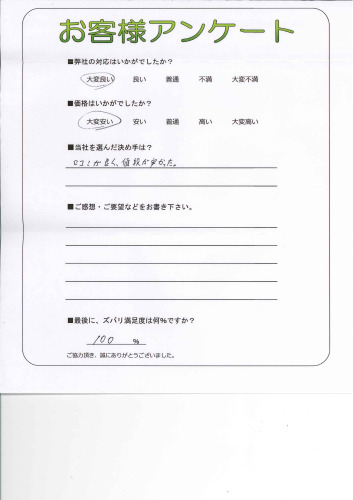 お客様アンケート
■弊社の対応はいかがでしたか？
大変良い 良い 普通 不満 大変不満
■価格はいかがでしたか？
大変安い 安い 普通 高い 大変高い
■当社を選んだ決め手は？
口コミが良く、値段が安かった。
■ご感想・ご要望などをお書き下さい。
■最後に、ズバリ満足度は何%ですか？
100 %
ご協力頂き、誠にありがとうございました。